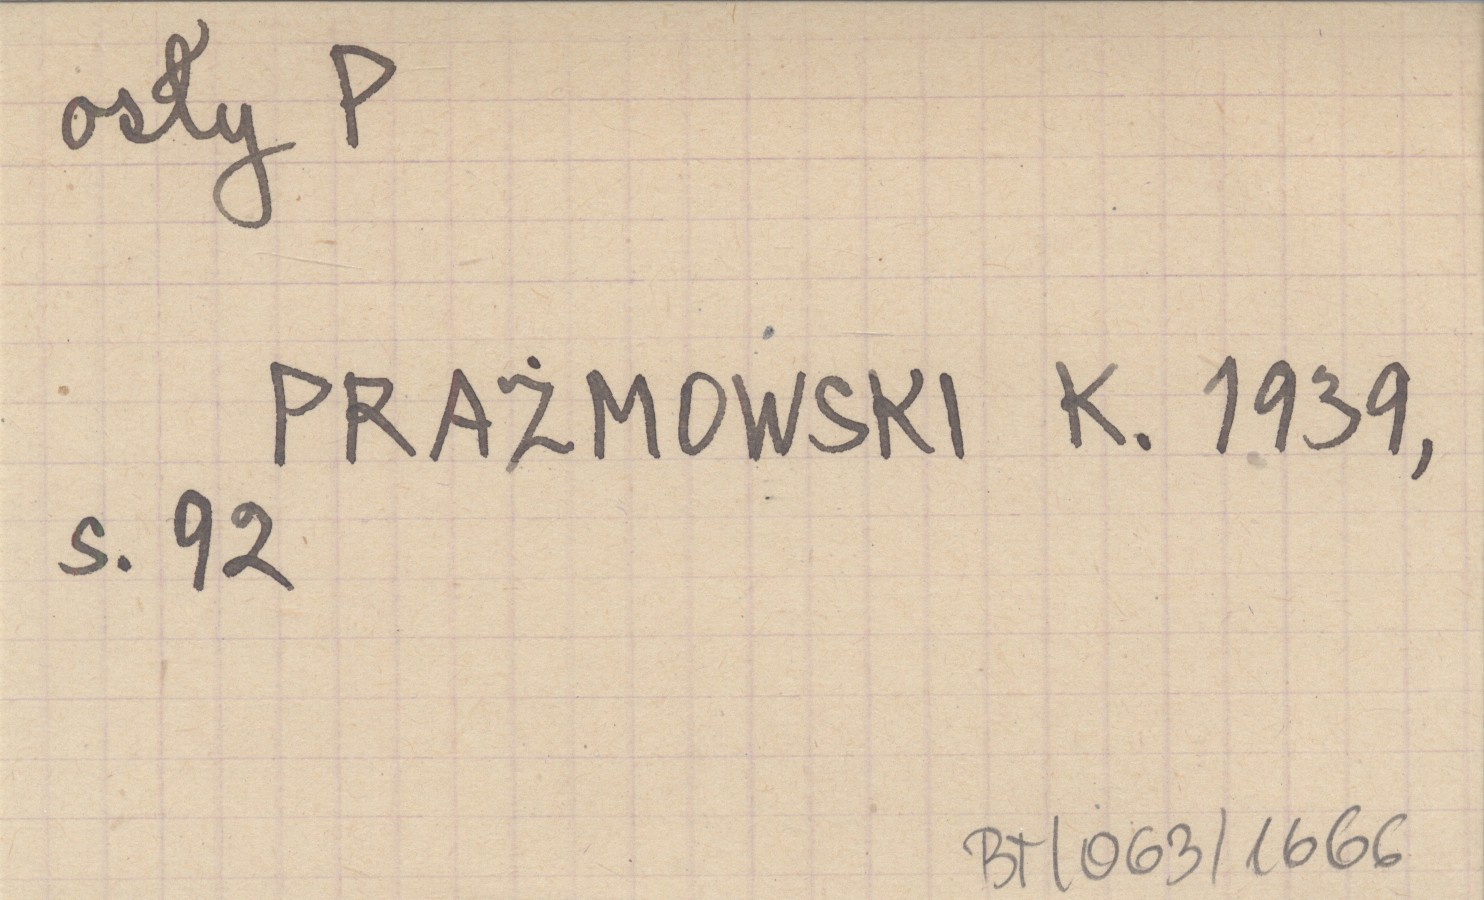 osły P
PRAŻMOWSKI K. 1939,
s. 92
BT/063/1666